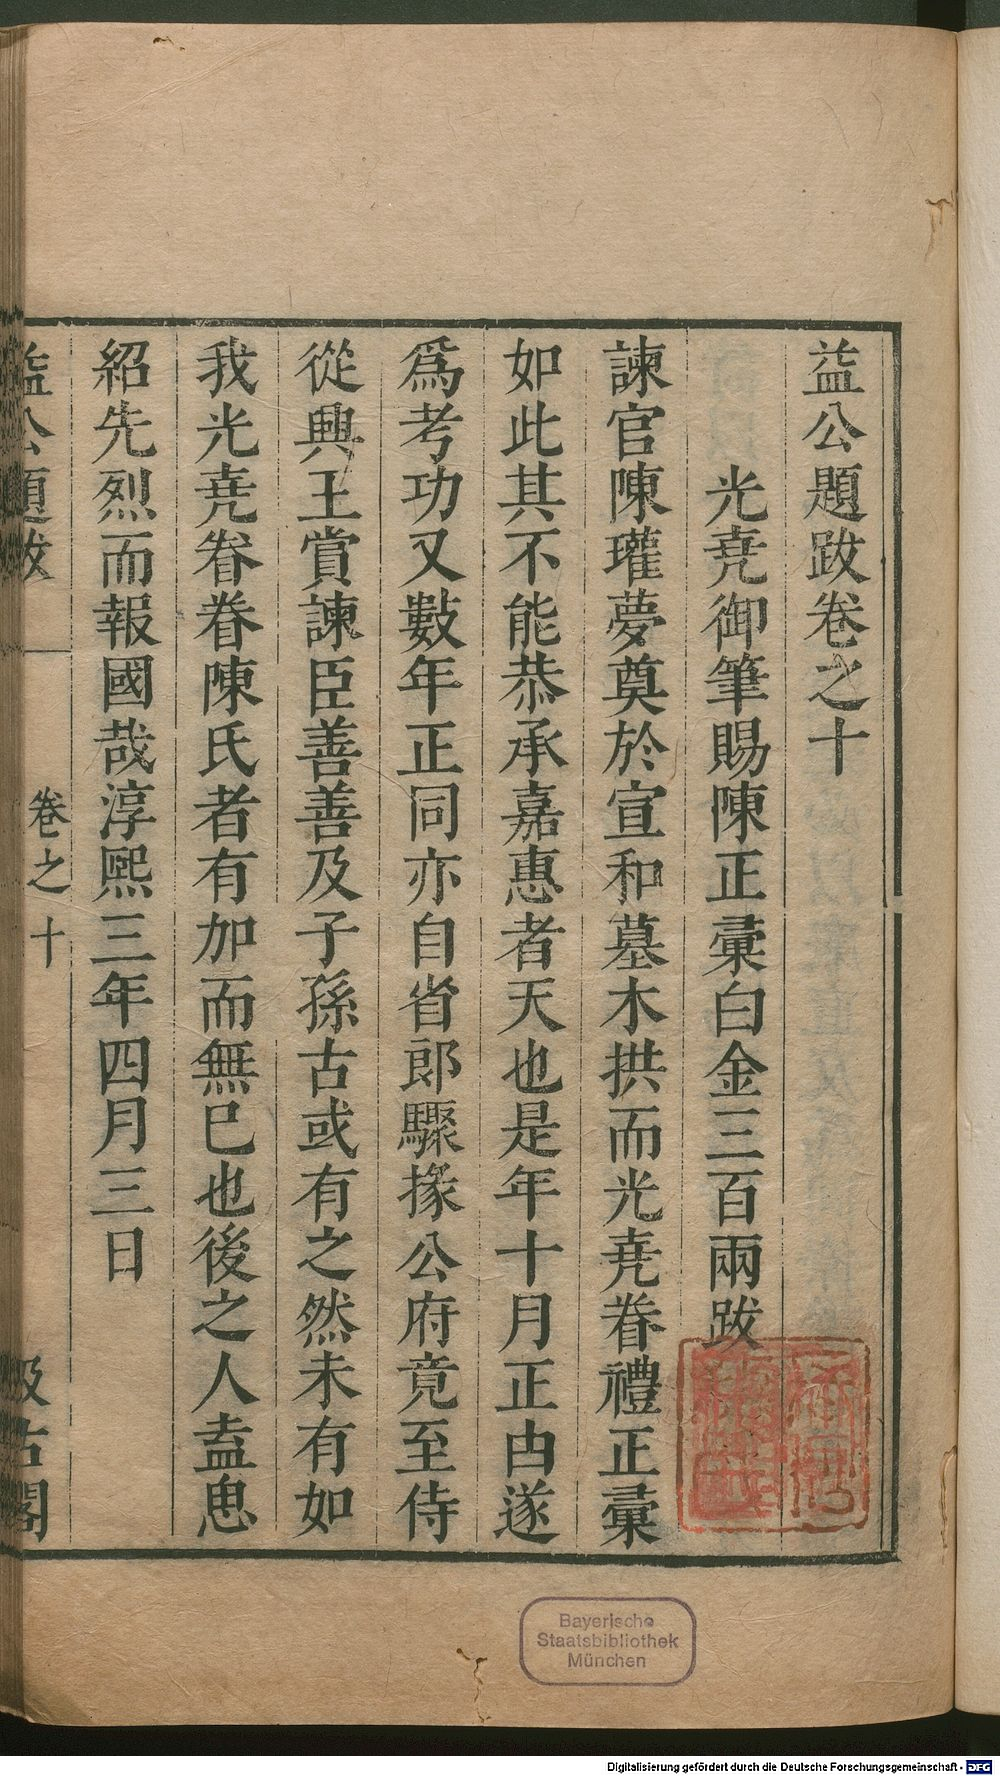 益公題跋卷之十
光堯御筆賜陳正彙白金三百兩跋
諫官陳瓘夢奠於宣和墓木拱而光堯眷禮正彙
如此其不能恭承嘉惠者天也是年十月正由遂
爲考功又數年正同亦自省郎驟掾公府竟至侍
從興王賞諫臣善善及子孫古或有之然未有如
我光堯眷眷陳氏者有加而無已也後之人盍思
紹先烈而報國哉淳熙三年四月三日
益公題跋 卷之十 汲古閣
Bayerische
Staatsbibliothek
München
Digitalisierung gefördert durch die Deutsche Forschungsgemeinschaft - DFG